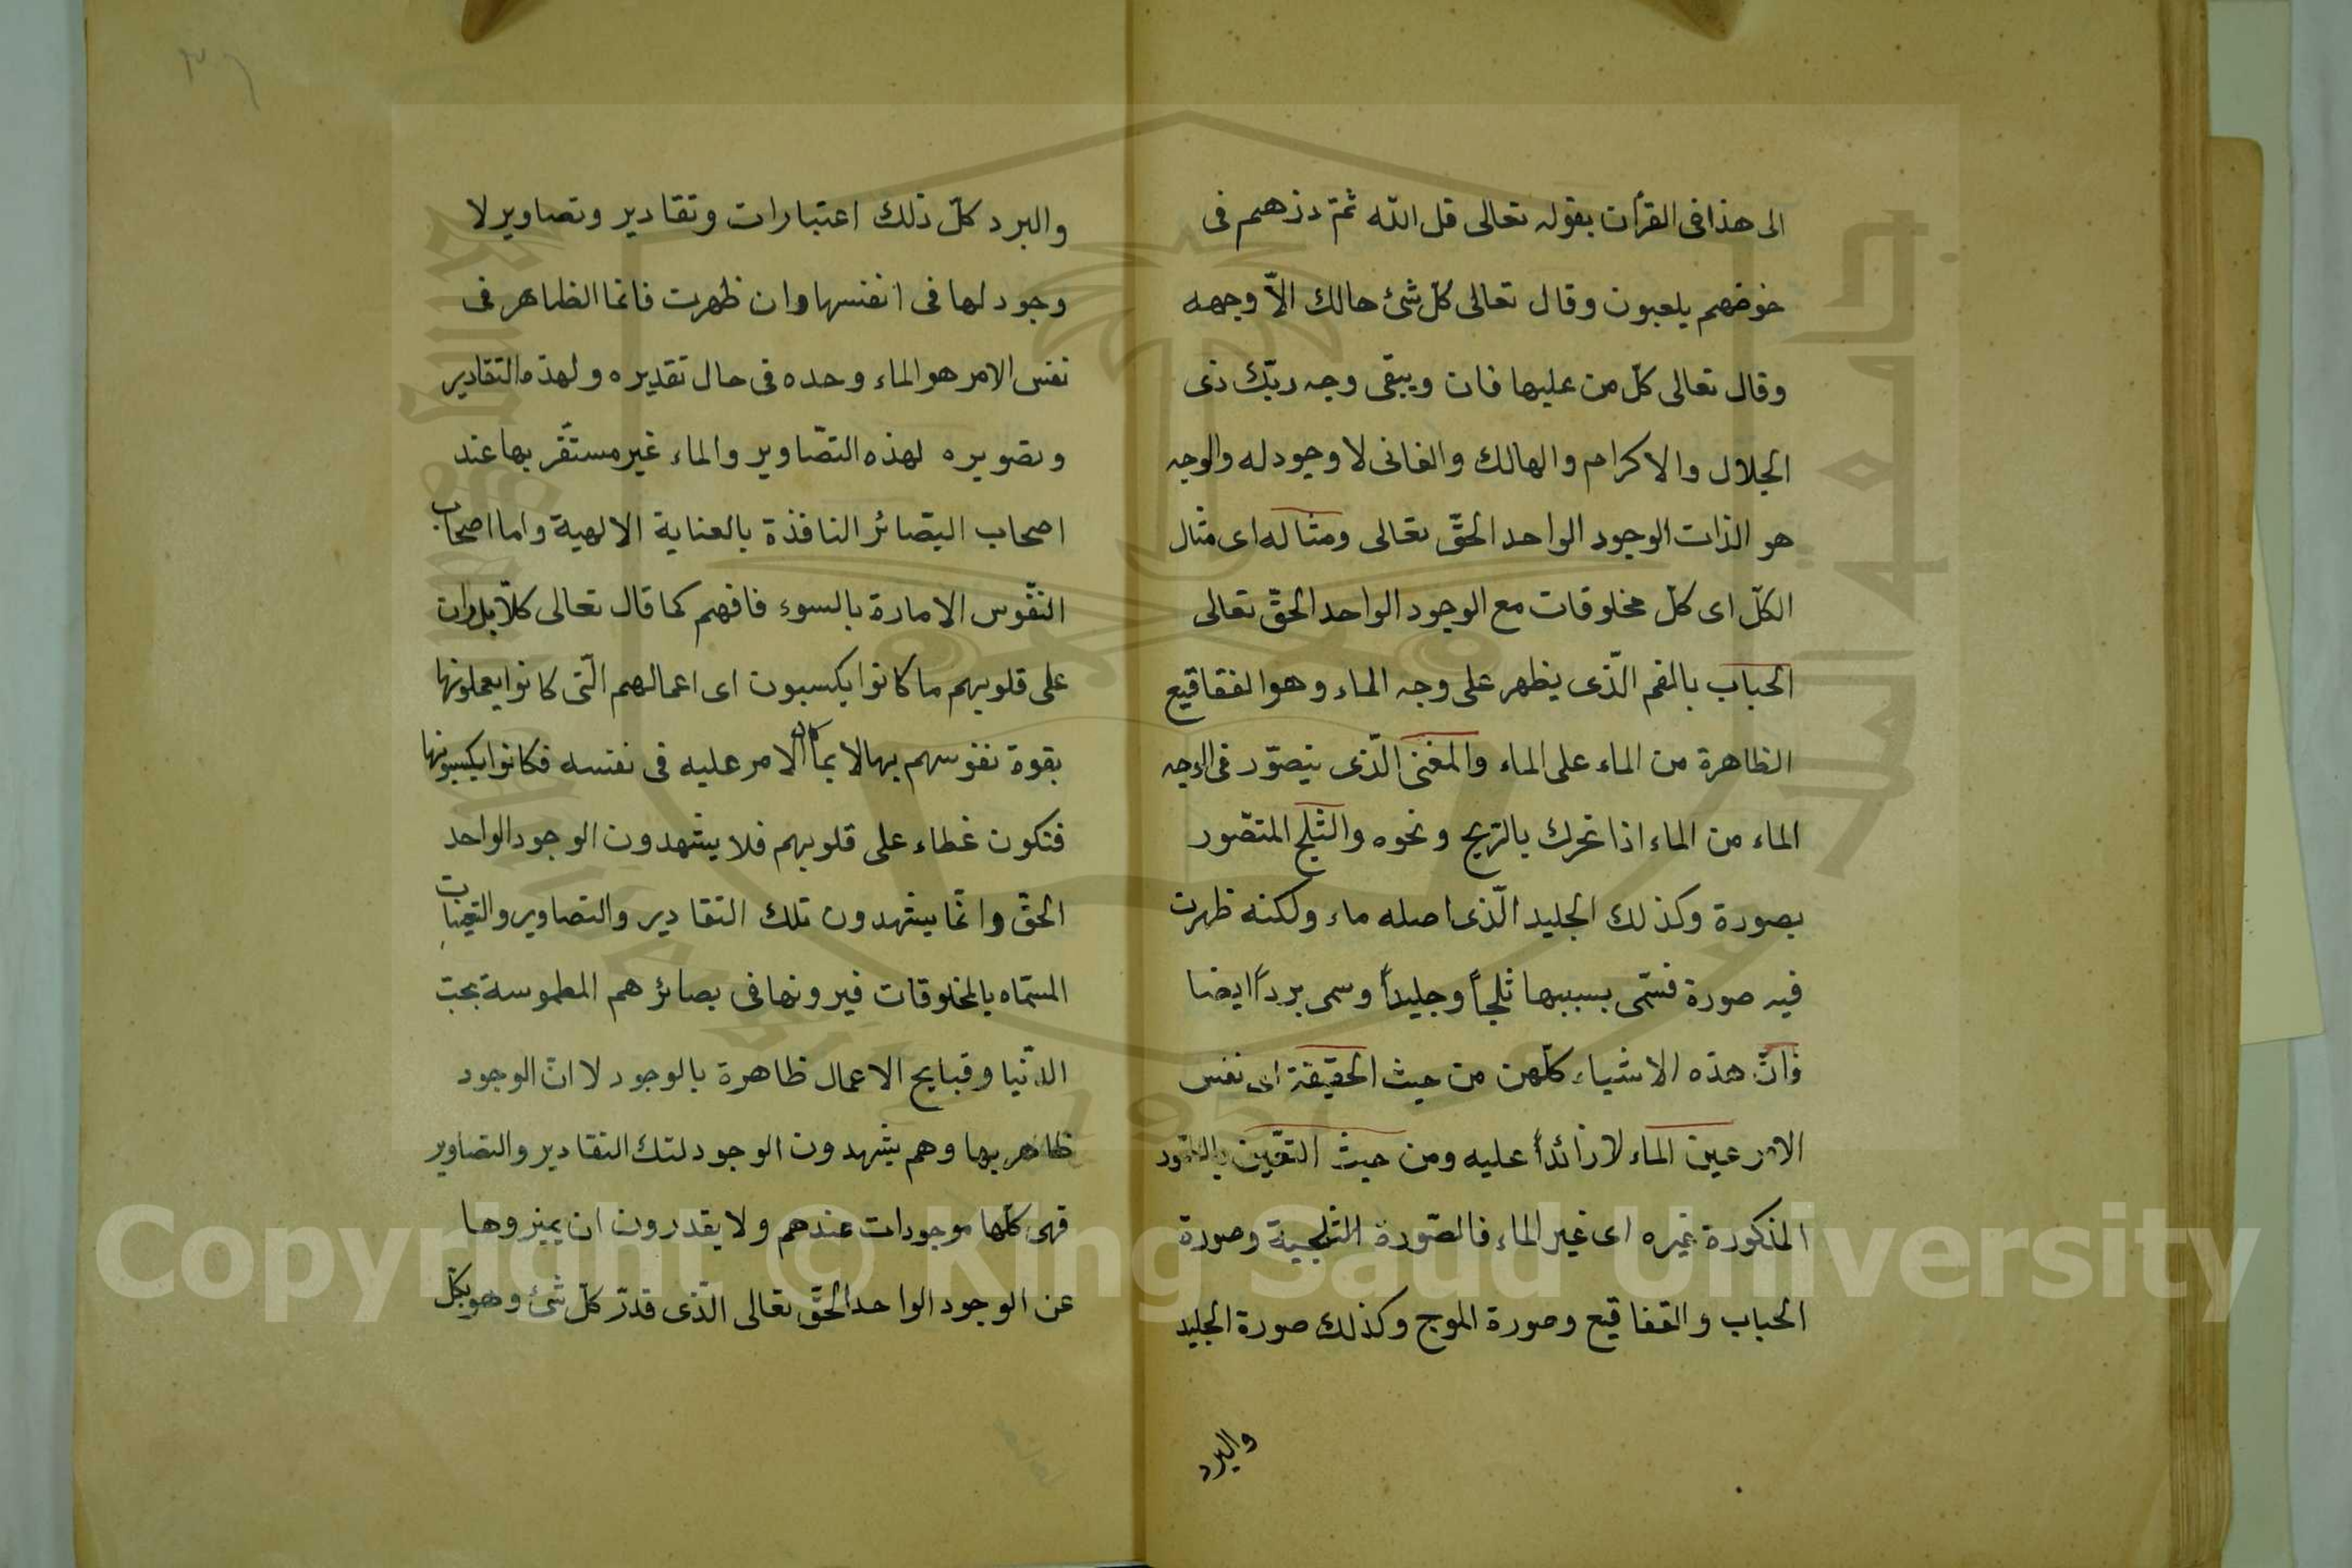 الى هذا فى القرأن بقوله تعالى قل الله ثمّ ذرهم فى
خوضهم يلعبون وقال تعالى كلّ شئ هالك الاّ وجهه
وقال تعالى كلّ من عليها فان ويبقى وجه ربّك ذى
الجلال والاكرام والهالك والفانى لا وجود له والوجه
هو الذات الوجود الواحد الحقّ تعالى ومثاله اى مثال
الكلّ اى كلّ مخلوقات مع الوجود الواحد الحقّ تعالى
الحباب بالفم الّذى يظهر على وجه الماء وهو الفقاقيع
الظاهرة من الماء على الماء والّذى يتصوّر فى الوجه
الماء من الماء اذا تحرك بالرّيح ونحوه والثلج المتصّور
بصورة وكذلك الجليد الّذى اصله ماء ولكنه ظهرت
فيه صورة فسّمى بسببها ثلجاً وجليداً وسمى برداً ايضا
فانّ هذه الاشياء كلّهن من حيث الحقيقة اى نفس
الامر عين الماء لا زائداً عليه ومن حيث التعّين
المذكورة غيره اى غير الماء فالصّورة الثلجية وصورة
الحباب والفقاقيع وصورة الموج وكذلك صورة الجليد
والبرد
والبرد كلّ ذلك اعتبارات وتقادير وتصاوير لا
وجود لها فى انفسها وان ظهرت فانما الظاهر فى
نفس الامر هو الماء وحده فى حال تقديره ولهذه التقادير
وتصويره لهذه التصّاوير والماء غير مستقّر بها عند
اصحاب البصّائر النافذة بالعناية الالهية واما اصحاب
النفّوس الامارة بالسوء فافهم كما قال تعالى كلاّ بل ران
على قلوبهم ما كانوا يكسبون اى اعمالهم الّتى كانوا يعملونها
بقوة نفوسهم بها لا بما كان الامر عليه فى نفسه فكانوا يكسبونها
فتكون غطاء على قلوبهم فلا يشهدون الوجود الواحد
الحقّ وانّما يشهدون تلك التقادير والتصاوير والتعينات
المسمّاه بالمخلوقات فيرونها فى بصائرهم المطموسة بحبّ
الدّنيا وقبايح الاعمال ظاهرة بالوجود لا انّ الوجود
ظاهر بها وهم يشهدون الوجود لتلك التقادير والتصاوير
فهى كلّها موجودات عندهم ولا يقدرون ان يميزوها
عن الوجود الواحد الحقّ تعالى الّذى قدّر كلّ شئ وهو بكلّ
Copyright © King Saud University